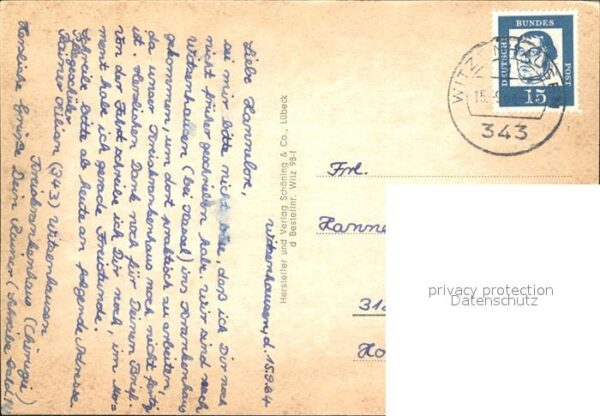 Witzenhausen, d. 15.9.64
Liebe Hannelore,
sei mir bitte nicht böse, daß ich Dir noch
nicht früher geschrieben habe. Wir sind nach
Witzenhausen (bei Kassel) ins Krankenhaus
gekommen, um dort praktisch zu arbeiten,
da unser Kreiskrankenhaus noch nicht fertig
ist. Herzlichen Dank noch für Deinen Brief.
Von der Fahrt schreibe ich Dir noch, im Mo-
ment habe ich gerade Freistunde.
Schreibe bitte ab heute an folgende Adresse
Pflegeschüler
Rainer
(343) Witzenhausen
Kreiskrankenhaus (Chirurgie)
Herzliche Grüsse Dein Rainer (Schreibe bald!)
Hersteller und Verlag Schöning & Co., Lübeck
d Bestellnr. Witz 98-1
DEUTSCHE
BUNDES
POST
15
WITZENHAUSEN
15.9.
343
Frl.
Hanne
318
privacy protection
Datenschutz